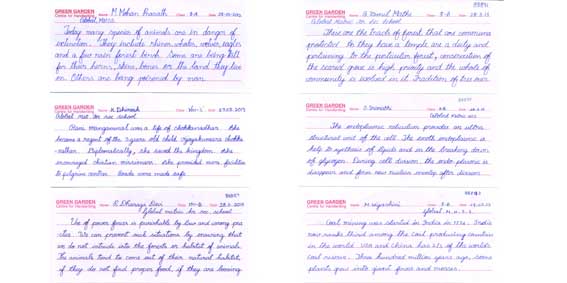 GREEN GARDEN
Centre for Handwriting
Name : M Mohan Prasath Class : 8-A Date :
Global Matric
Today many species of animals are in danger of
extinction. They include rhinos, whales, wolves, eagles
and a few rain forest birds. Some are being killed
for their horns, skins, bones or the land they live
in. Others are being poisoned by man.
GREEN GARDEN
Centre for Handwriting
Name : K. Class : Date : 27.02.2013
Global mat. hr. sec school
Rani mangammal was a wife of chokkanadhar. She
became a regent of the 3 years old child vijayaranga chokka
-nathan. Diplomatically, she saved the kingdom. She
encouraged christian missionaries. She provided many facilities
to pilgrim centres. Roads were made safe
GREEN GARDEN
Centre for Handwriting
Name : R. Dharaga Devi Class : Date :
Global matric hr. sec. school
Use of power fence is punishable by law and wrong pra
ctice. We can prevent such situations by ensuring that
we do not intrude into the forests or habitat of animals.
The animals tend to come out of their natural habitat,
if they do not find proper food, if they are
GREEN GARDEN
Centre for Handwriting
Name : Class : 8-A Date :
Global Matric hr sec school
These are the tracts of forest that are communa
protected. In they have a temple are a deity and
pertaining to the particular forest, conservation of
the sacred grove is high priority and the whole of
community is involved in it. Tradition of tree wor
GREEN GARDEN
Centre for Handwriting
Name : S. Class : Date :
Global Matric
The endoplasmic reticulum provides an ultra-
structural unit of the cell. The smooth endoplasmic is
help to synthesis of lipids and in the breaking down
of glycogen. During cell division the endo plasmic is
disappear and form new nuclear envelop after division.
GREEN GARDEN
Centre for Handwriting
Name : M. Class : Date :
Global. M. H. S. S.
Coal mining was started in India in 1774. India
now ranks third among the coal producing countries
in the world. USA and China has 2/3 of the world's
coal reserve. Three hundred million years ago, some
plants grew into giant ferns and mosses.